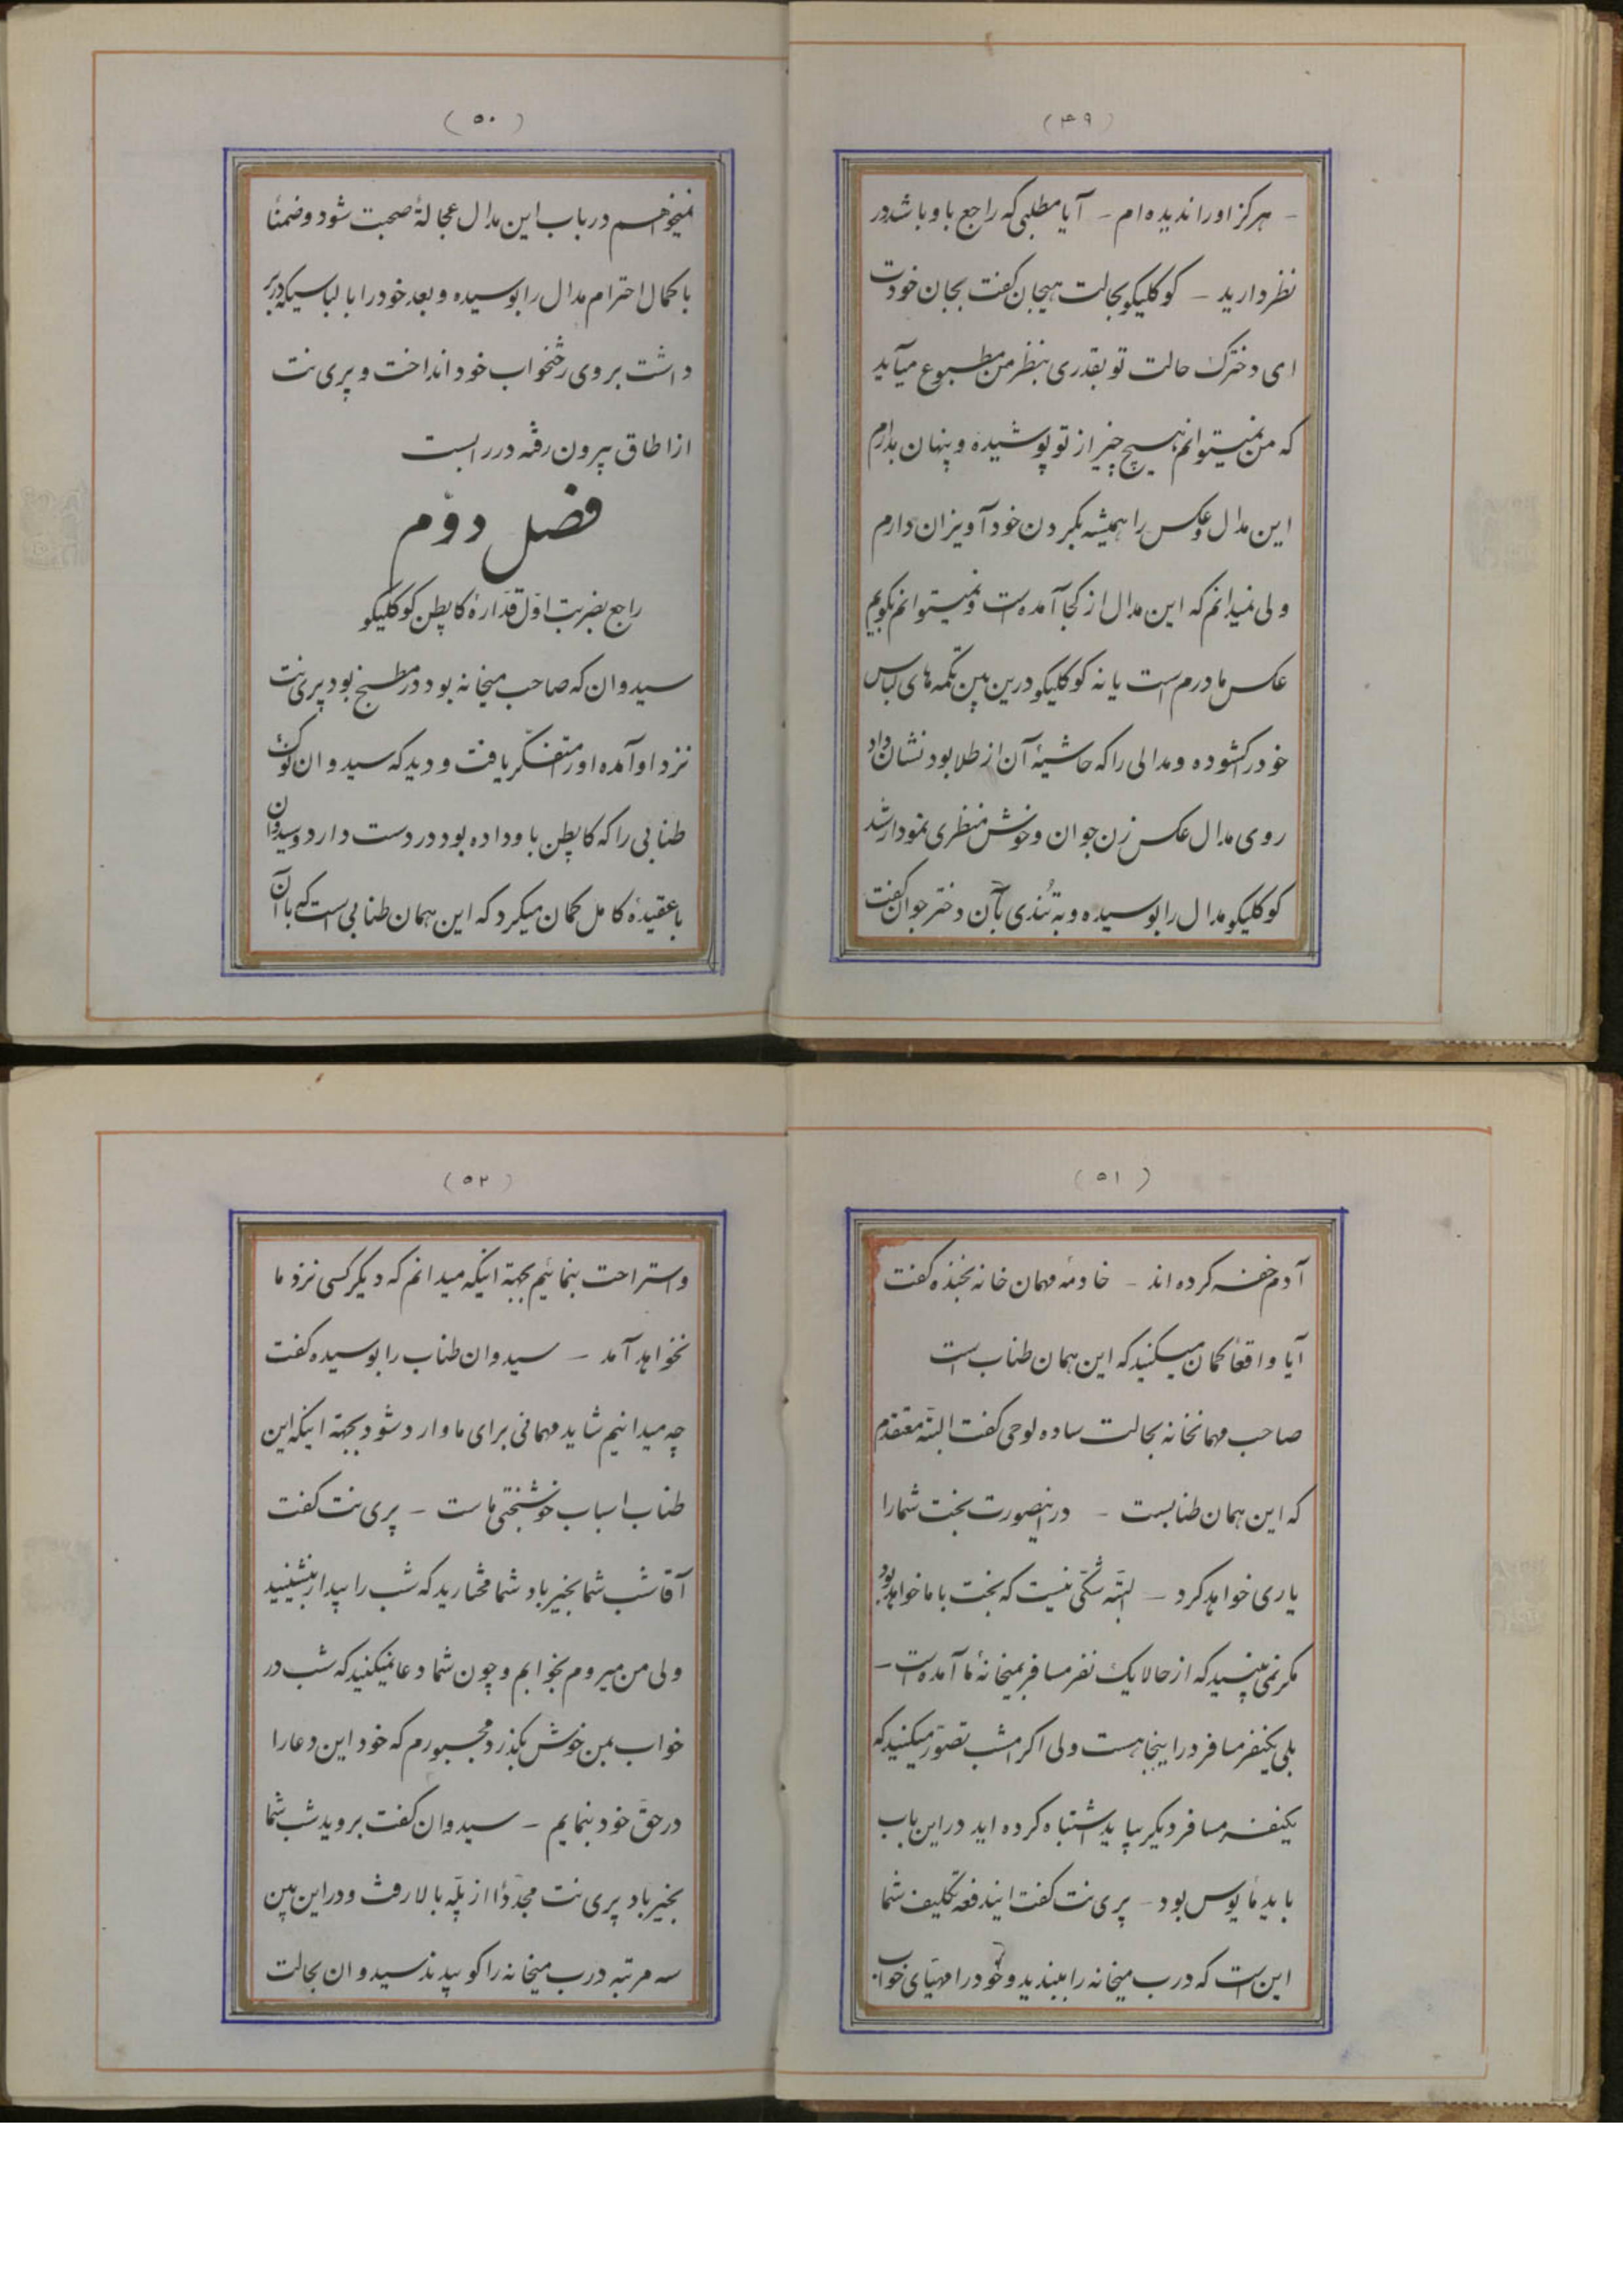 (۴۹)
- هرگز او را ندیده‌ام - آیا مطلبی که راجع باو باشد در
نظر دارید - کوکلیکو بحالت هیجان گفت بجان خودت
ای دخترک حالت تو بقدری بنظر من مطبوع میآید
که من نمیتوانم هیچ چیز از تو پوشیده و پنهان بدارم
این مدال و عکس را همیشه بگردن خود آویزان دارم
ولی نمیدانم که این مدال از کجا آمده است و نمیتوانم بگویم
عکس مادرم است یا نه کوکلیکو درین بین تکمه‌های لباس
خود را گشوده و مدالی را که حاشیهٔ آن از طلا بود نشان داد
روی مدال عکس زن جوان و خوش منظری نمودار شد
کوکلیکو مدال را بوسیده و به تندی بآن دختر جوان گفت
(۵۰)
نمیخواهم در باب این مدال عجالةً صحبت شود و ضمناً
با کمال احترام مدال را بوسیده و بعد خود را با لباسیکه در بر
داشت بروی رختخواب خود انداخت و پری نت
از اطاق بیرون رفته در را بست
فصل دوّم
راجع بضربت اوّل قدّارهٔ کاپطن کوکلیکو
سیدوان که صاحب میخانه بود در مطبخ بود پری نت
نزد او آمده او را متفکّر یافت و دید که سیدوان
طنابی را که کاپطن باو داده بود در دست دارد و سیدوان
با عقیدهٔ کامل گمان میکرد که این همان طنابی است که با آن
(۵۱)
آدم خفه کرده‌اند - خادمهٔ مهمان خانه بخنده گفت
آیا واقعاً گمان میکنید که این همان طناب است
صاحب مهمانخانه بحالت ساده لوحی گفت البتّه معتقدم
که این همان طنابست - در اینصورت بخت شما را
یاری خواهد کرد - البتّه شکّی نیست که بخت با ما خواهد بود
مگر نمی بینید که از حالا یک نفر مسافر بمیخانهٔ ما آمده است -
بلی یکنفر مسافر در اینجا هست ولی اگر امشب تصوّر میکنید که
یکنفر مسافر دیگر بیاید اشتباه کرده‌اید در این باب
باید مأیوس بود - پری نت گفت ایندفعه تکلیف شما
این است که درب میخانه را ببندید و خود را مهیّای خواب
(۵۲)
و استراحت بنمائیم بجهة اینکه میدانم که دیگر کسی نزد ما
نخواهد آمد - سیدوان طناب را بوسیده گفت
چه میدانیم شاید مهمانی برای ما وارد شود بجهة اینکه این
طناب اسباب خوشبختی ماست - پری نت گفت
آقا شب شما بخیر باد شما مختارید که شب را بیدار بنشینید
ولی من میروم بخوابم و چون شما دعا نمیکنید که شب در
خواب بمن خوش بگذرد مجبورم که خود این دعا را
در حقّ خود بنمایم - سیدوان گفت بروید شب شما
بخیر باد پری نت مجدّداً از پلّه بالا رفت و در این بین
سه مرتبه درب میخانه را کوبیدند سیدوان بحالت